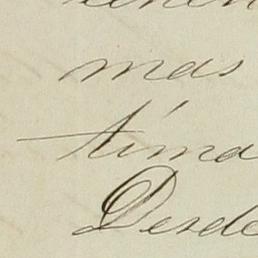 mas
tima
Desde